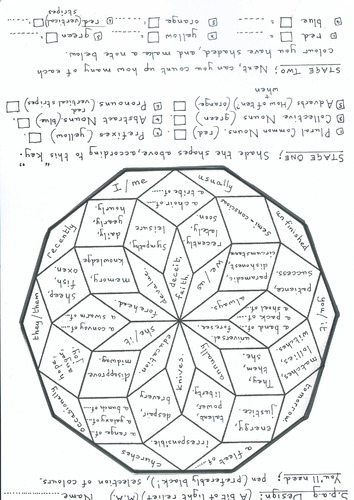 S.p.a.g. Design: (A bit of light relief) (M.W.) Name
You'll need; pen (preferably black), selection of colours.
a fleet of...
churches
occasionally
they/them
recently
I/me
usually
unfinished
you/it
tomorrow.
matches,
lollies,
witches.
patience,
success.
semi-conscious
a tribe of....
a choir of....
hourly,
yearly,
daily,
leisure
sheep,
fish,
oxen.
hope,
anger,
joy.
a range of...
a galaxy of...
a bunch of...
irresponsible.
energy,
justice.
They,
them,
she.
talent,
power,
liberty.
despair,
bravery
disapprove
midway.
a convoy....
a swarm of...
memory,
knowledge
sympathy
lately,
soon.
recently
we/us
dishonest
circumstances
always.
a shoal of...
a pack of...
a band of...
universal
foresee.
annually
knives.
education
she/it
forehead
devalue.
deceit,
faith.
STAGE ONE; Shade the shapes above, according to this "Key."
Plural Common Nouns. (red)
Prefixes. (yellow)
Collective Nouns. (green)
Abstract Nouns. (blue)
Adverbs (How often?) (orange)
when
Pronouns. red (vertical stripes)
STAGE TWO; Next, can you count up how many of each
colour you have shaded, and make a note below.
red
yellow
green
blue
orange
red (vertical)
stripes